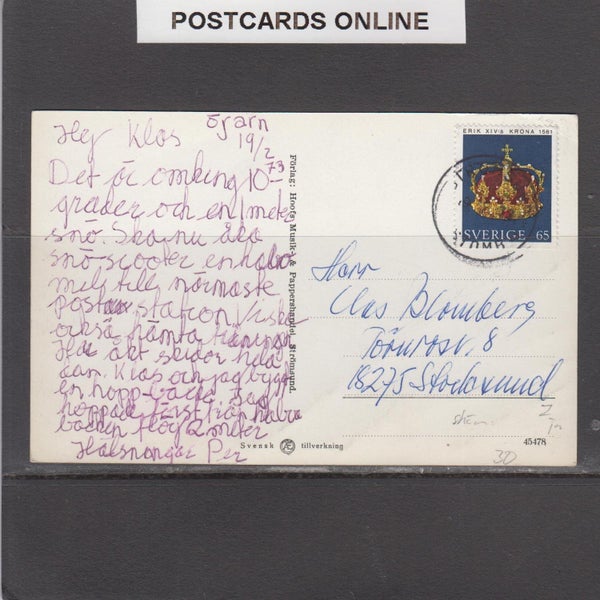 POSTCARDS ONLINE
Hej Klas
Öjarn
19/2
73
Det är omkring 10
grader och en meter
snö. Ska nu åka
snö-scooter en halv
mil till närmaste
station Vi ska
också hämta tidningar
Har åkt skidor hela
dan. Klas och jag bygg
en hopp-backe. Jag
hoppade först från halva
backen flög 2 meter
Hälsningar Per
Förlag: Hoofs Musik- & Pappershandel, Strömsund.
ERIK XIV:s KRONA 1561
SVERIGE 65
Herr
Clas Blomberg
Törnrosv. 8
18275 Stocksund
Svensk Æ tillverkning
45478
30